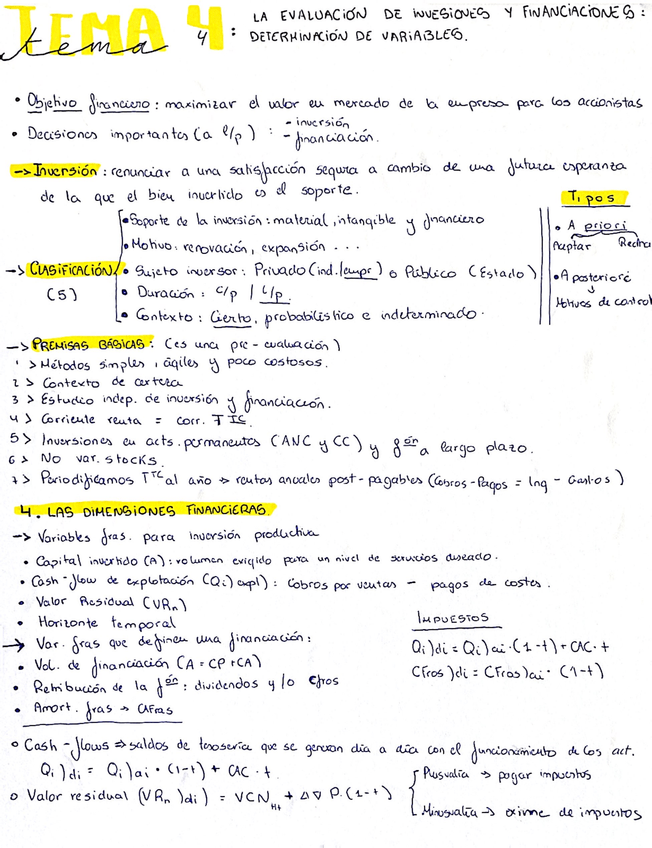 TEMA 4
tema 4 : LA EVALUACIÓN DE INVESIONES Y FINANCIACIONES :
DETERMINACIÓN DE VARIABLES.
• Objetivo financiero : maximizar el valor en mercado de la empresa para los accionistas
• Decisiones importantes (a l/p) : - inversión
- financiación.
-> Inversión : renunciar a una satisfacción segura a cambio de una futura esperanza
de la que el bien invertido es el soporte.
Tipos
• A priori
Aceptar
• A posteriori
↓
Motivos de control
-> CLASIFICACIÓN
(5)
• Soporte de la inversión : material, intangible y financiero
• Motivo : renovación, expansión ...
• Sujeto inversor : Privado (ind./empr) o Público (Estado)
• Duración : c/p | L/p.
• Contexto : Cierto, probabilístico e indeterminado.
-> PREMISAS BÁSICAS : (es una pre-evaluación)
1 > Métodos simples, ágiles y poco costosos.
2 > Contexto de certeza
3 > Estudio indep. de inversión y financiación.
4 > Corriente renta = corr. TTC.
5 > Inversiones en acts. permanentes (ANC y CC) y fón a largo plazo.
6 > No var. stocks.
7 > Periodificamos TTC al año -> rentas anuales post-pagables (Cobros-Pagos = Ing - Gastos)
4. LAS DIMENSIONES FINANCIERAS.
-> Variables fras. para inversión productiva
• Capital invertido (A) : volumen exigido para un nivel de servicios deseado.
• Cash-flow de explotación (Qi) expl) : Cobros por ventas - pagos de costes.
• Valor Residual (VRn)
• Horizonte temporal
-> Var. fras que definen una financiación :
• Vol. de financiación (A = CP + CA)
• Retribución de la fón : dividendos y/o Cfros
• Amort. fras -> CAFras
IMPUESTOS
Qi)di = Qi)ai · (1-t) + CAC · t
CFros)di = CFros)ai · (1-t)
o Cash-flows => saldos de tesorería que se generan día a día con el funcionamiento de los act.
Qi)di = Qi)ai · (1-t) + CAC · t.
o Valor residual (VRn)di) = VCN + Δ∇ P. (1-t)
Plusvalía -> pagar impuestos
Minusvalía -> exime de impuestos